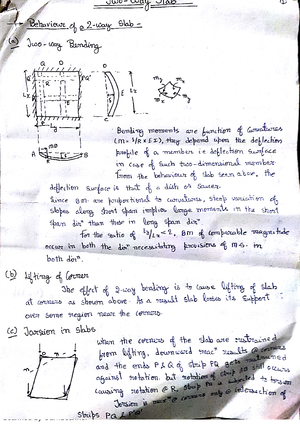 Two-Way Slab
1- Behaviour of a 2-way Slab -
(a) Two-way Bending
Bending moments are function of Curvatures
(m = 1/R x EI), they depend upon the deflection
profile of a member i.e deflection surface
in case of such two-dimensional member
From the behaviour of slab seen above, the
deflection surface is that of a dish or saucer.
Since BM are proportional to curvatures, steep variation of
slopes along short span implies large moments in the short
span dirⁿ than that in long span dirⁿ.
For the ratio of Ly/Lx < 2, BM of comparable magnitude
occur in both the dirⁿ necessitating provisions of m.s. in
both dirⁿ.
(b) Lifting of Corner
The effect of 2-way bending is to cause lifting of slab
at corners as shown above. As a result slab loses its support
over some region near the corners.
(c) Torsion in slabs
When the corners of the slab are restrained
from lifting, downward reacⁿ results @ corners
and the ends P & Q of strip PQ gets restrained
against rotation, but rotation of strip still occurs
causing rotation @ R. Strip is subjected to torsion
Torsion is maxᵐ @ corners only @ intersection of
Strips PQ &